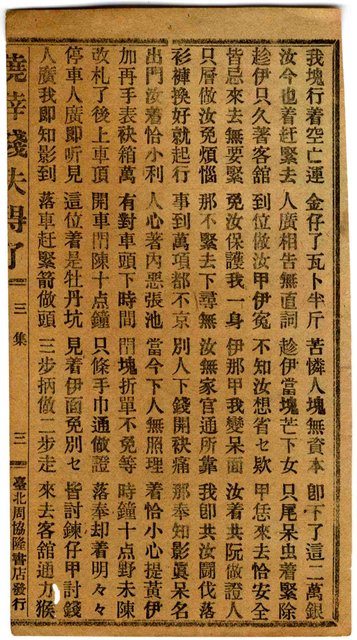 我塊行着空亡運　金仔了瓦卜半斤　苦憐人塊無資本　卽下了這二萬銀
汝今也着赶緊去　人廣相告無直詞　趁伊當塊芒下女　只尾呆虫着緊除
趁伊只久著客舘　到位做汝甲伊寃　不知汝想省セ欵　甲恁來去恰安全
皆忌來去無要緊　免汝保護我一身　伊那甲我變呆面　汝着共阮做證人
只層做汝免煩惱　那不緊去下譚無　汝無家官通所靠　我卽共汝鬪伐落
衫褲換好就起行　事到萬項都不京　別人下錢開袂痛　那奉知影眞呆名
出門汝着恰小利　人心著內惡張池　當今下人無照理　着恰小心提黃伊
加再手表袂稍萬　有對車頭下時間　塊折單不免等　時鐘十点野未陳
改札了後上車頂　開車陳十点鐘　只條手巾通做證　落奉却着明々々
停車人廣即听見　這位着是牡丹坑　見着伊面免別セ　皆討鍊仔甲討錢
人廣我即知影到　落車赶緊箭做頭　三步抦做二步走　來去客舘通力猴
僥倖錢失得了　三集　三　臺北周協隆書店發行